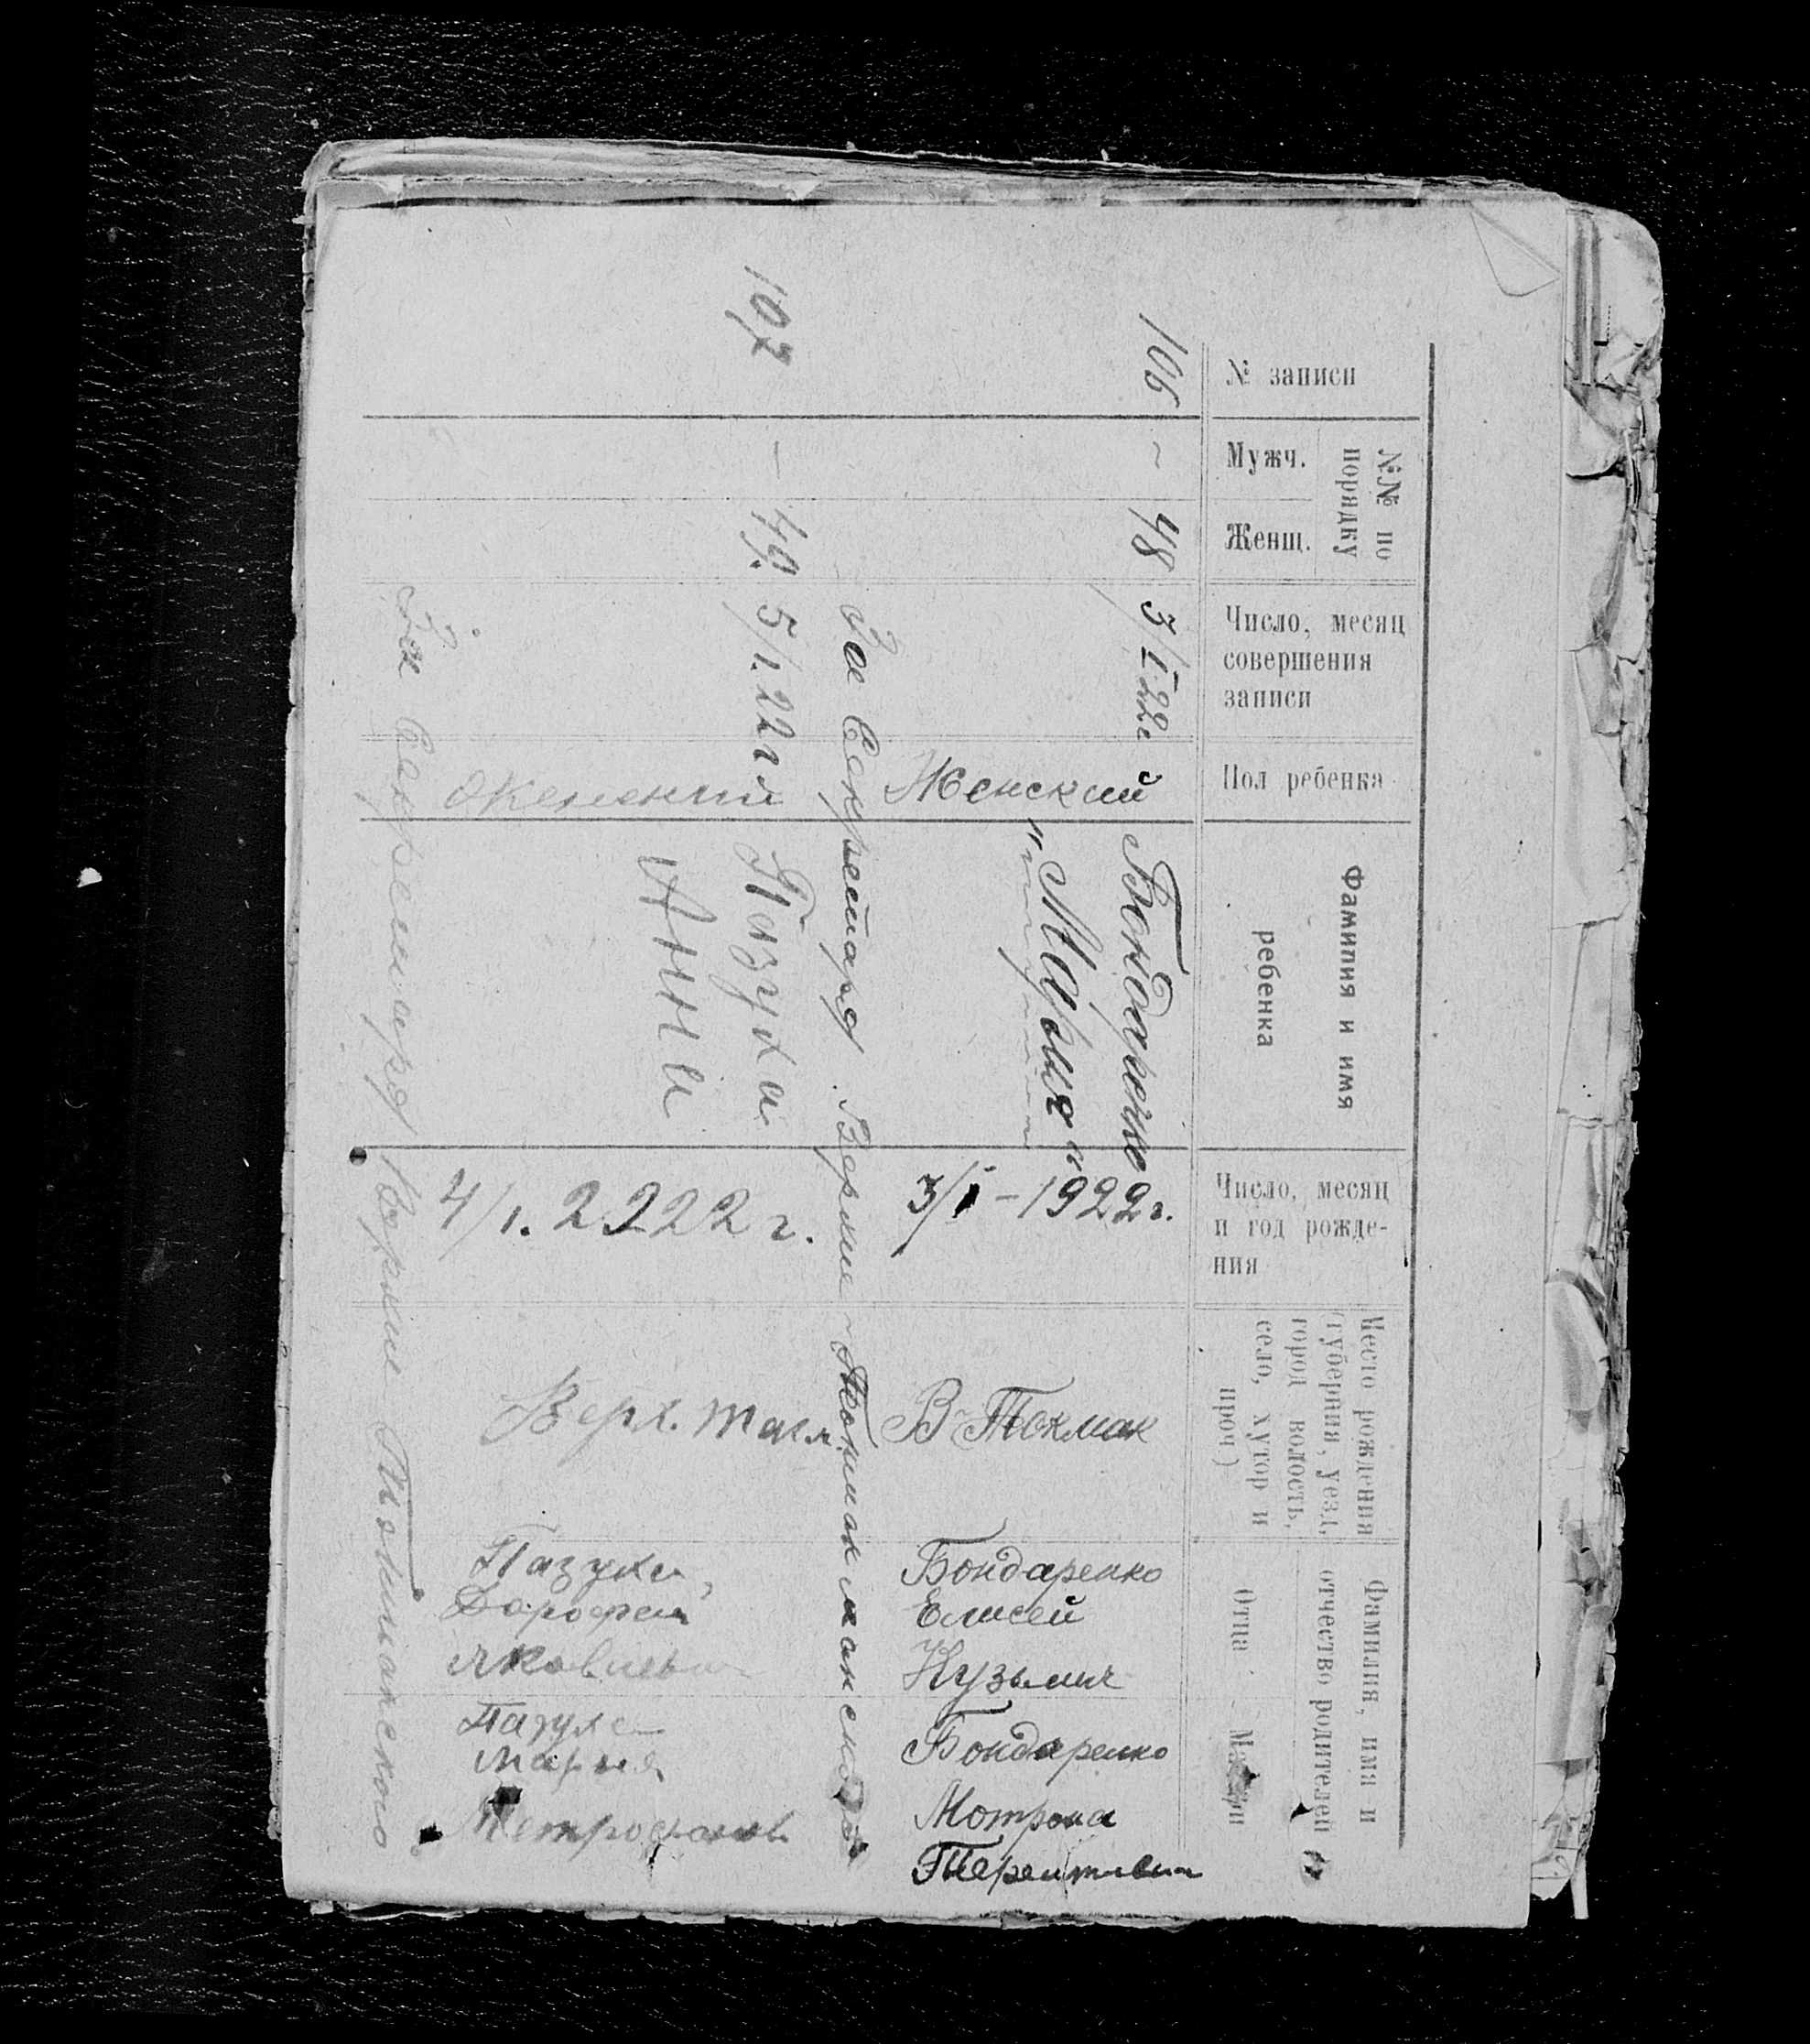 № записи
№№ по
порядку
Мужч.
Женщ.
Число, месяц
совершения
записи
Пол ребенка
Фамилия и имя
ребенка
Число, месяц
и год рожде-
ния
Место рождения
(губерния, уезд,
город волость,
село, хутор и
проч)
Фамилия, имя и
отчество родителей
Отца
Матери
106
~
48
3/I 22г
Женский
Бондаренко
"Мария"
3/I – 1922 г.
В-Токмак
Бондаренко
Елисей
Кузьмич
Бондаренко
Мотрона
Терентьевна
За Секретаря Верхне-Токмакманского
107
—
49.
5/1.22 г
Женский
Пазуха
Анна
4/1. 2222 г.
Верх. Ток.
Пазуха,
Дорофей
Яковлевич
Пазуха
Мария
Метрофанов
За Секретаря Верхне Токмакского